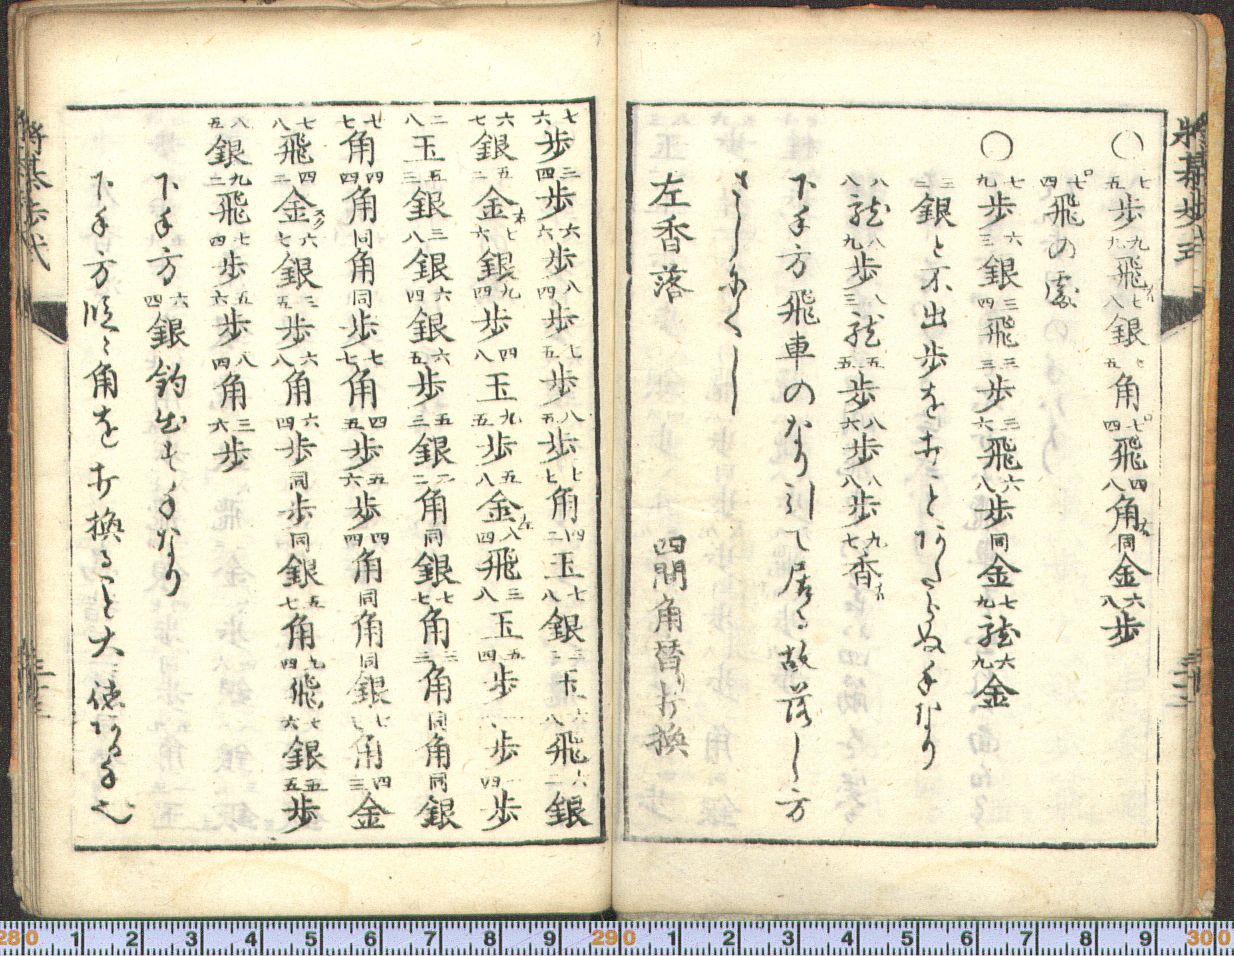 將棊歩式
〇七五歩九九飛七八銀七五角七四飛四八角同金六八歩
七四飛の處
〇七九歩六三銀三四飛三三歩三六飛六八歩同金七九龍六九金
三三銀と不出歩を
八八龍八九歩八三龍五五歩八六歩八八歩九七香
下手方飛車のなり引て居る故落し方
さしにくし
左香落 四間角替打換
七六歩三四歩六六歩八四歩七五歩八五歩七七角四二玉七八銀三二玉六八飛六二銀
六七銀五二金左七六銀九四歩四八玉九五歩五八金左八四飛三八玉五四歩一六歩一四歩
二八玉五三銀三八銀六四銀六五歩五三銀二二角同銀七七角三三角同角同銀
七七角四四角同角同歩七七角四五歩五六歩四四角同角同銀七七角四三金
七八飛四二金六七銀三五歩六八角六四歩同歩同銀五七角九四飛七六銀五五歩
八五銀九二飛七四歩五六歩八四角三六歩
下手方六四銀釣出す手なり
下手方順に角を打換ること大に徳ある也
280 1 2 3 4 5 6 7 8 9 290 1 2 3 4 5 6 7 8 9 300